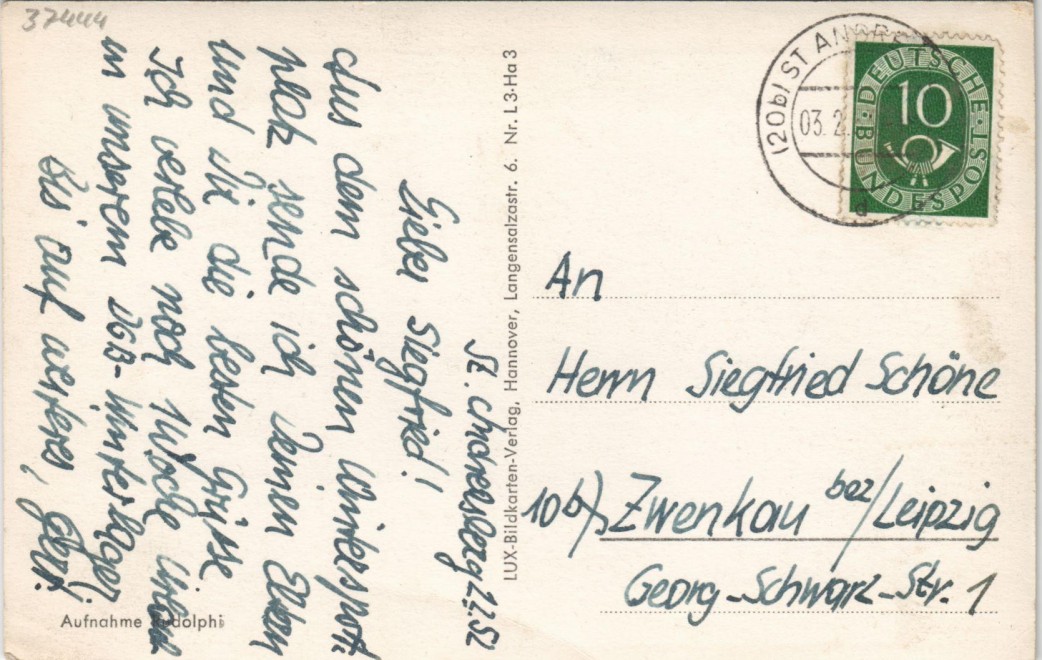 37444
St. Andreasberg 2.2.52
Lieber Siegfried!
Aus dem schönen Wintersport-
platz sende ich Deinen Eltern
und Dir die besten Grüsse
Ich verlebe noch 1 Woche Urlaub
in unserem DGB-Winterlager.
Bis auf weiteres,
Aufnahme Rudolphi
LUX-Bildkarten-Verlag, Hannover, Langensalzastr. 6. Nr. L3-Ha 3
(20b) ST ANDRE
03.2.
d
DEUTSCHE
BUNDESPOST
10
An
Herrn Siegfried Schöne
10b) Zwenkau bez/Leipzig
Georg-Schwarz-Str. 1